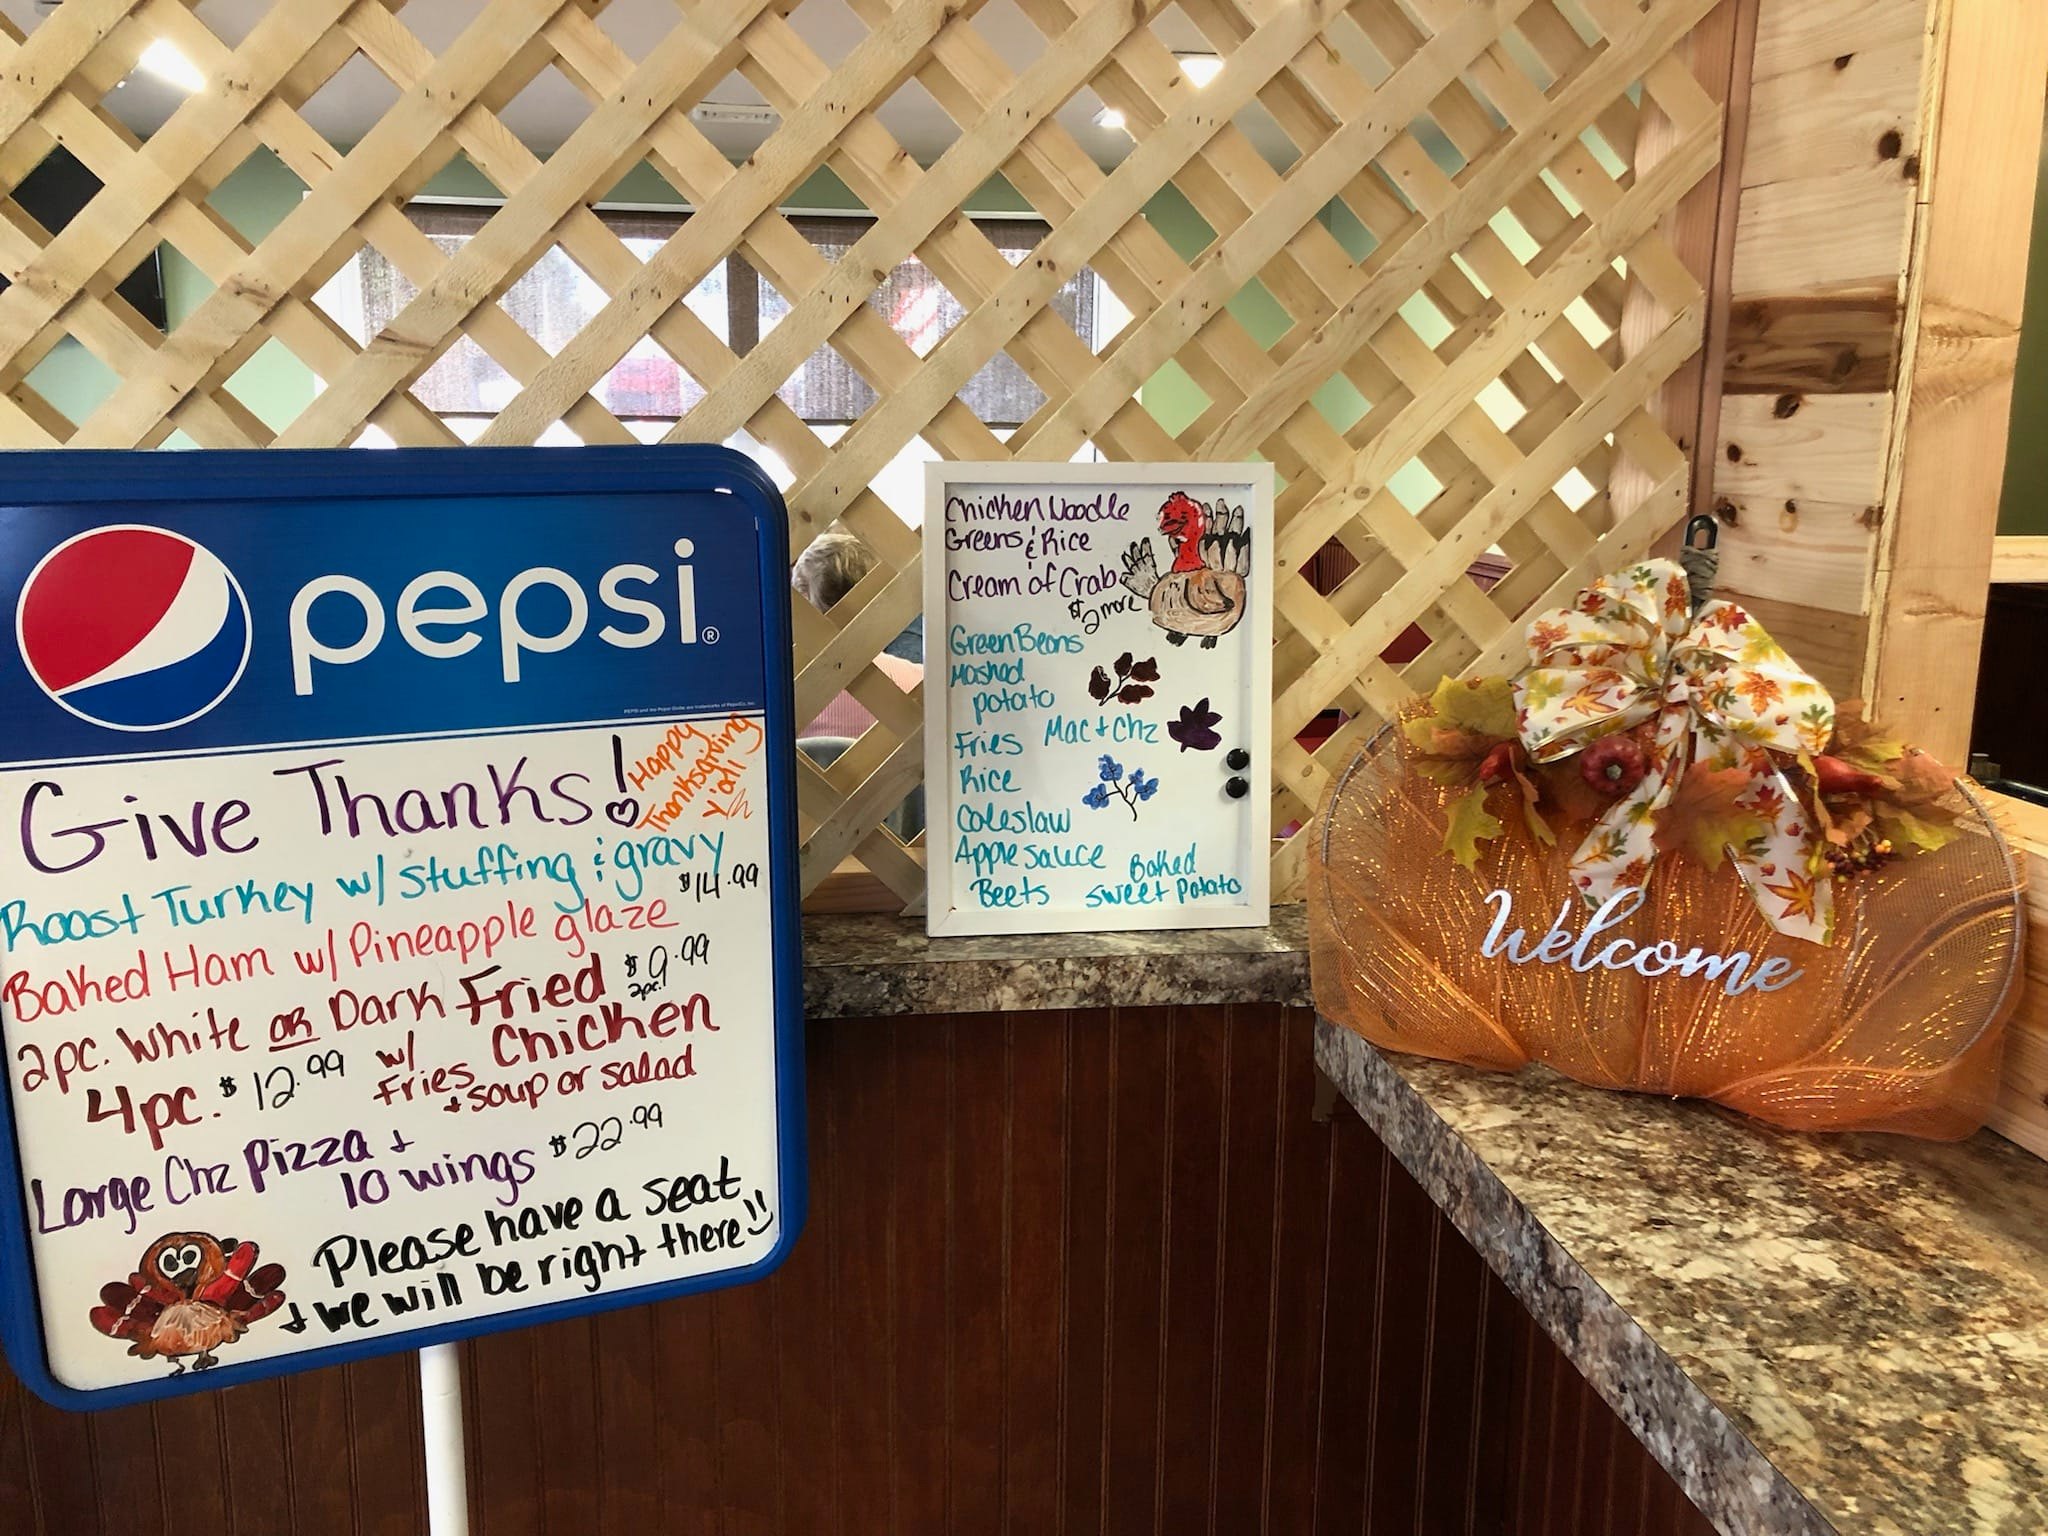 pepsi®
Give Thanks!
Happy
Thanksgiving
Y'all
Roost Turkey w/ stuffing & gravy
$14.99
Baked Ham w/ Pineapple glaze
2pc. White OR Dark Fried $9.99
2pc.
4pc. $12.99 w/ Chicken
Fries + soup or salad
Large Chz Pizza +
10 wings $22.99
Please have a seat
+ we will be right there
Chicken Noodle
Greens & Rice
Cream of Crab
$2 more
Green Beans
Mashed
potato
Fries Mac + Chz
Rice
Coleslaw
Applesauce Baked
Beets sweet Potato
Welcome